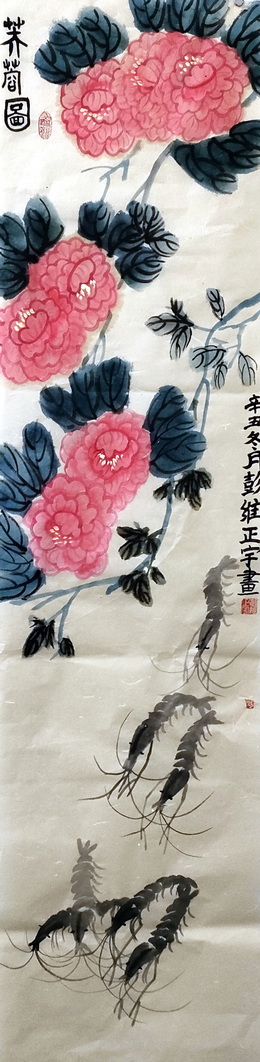 芙蓉圖
辛丑冬月彭維正宇畫